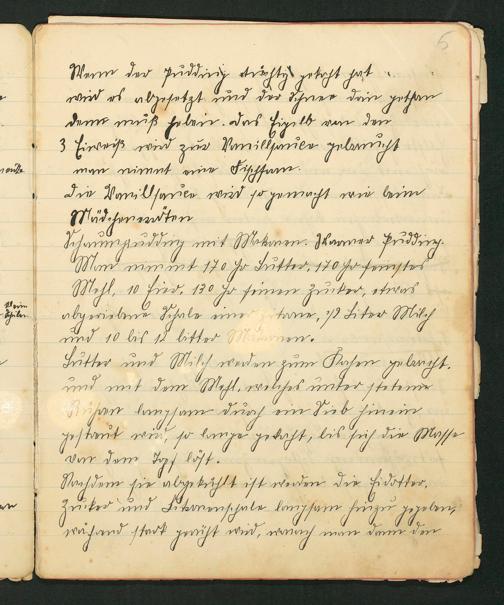 6
Wenn der Pudding tüchtig gekocht hat
wird es abgesetzt und der Schnee drin gethan
denn muß sein. Das Eigelb von den
3 Eiweiß wird zur Vanillsauce gebraucht
man nimmt eine
Die Vanillsauce wird so gemacht wie beim
Mädchenerröten
Schaumpudding mit Makronen. Warmer Pudding.
Man nimmt 170 Gr Butter, 170 Gr feinstes
Mehl, 10 Eier, 130 Gr feinen Zucker, etwas
abgeriebene Schale einer Zitrone, 1/2 Liter Milch
und 10 bis 12 bitter Makronen.
Butter und Milch werden zum Kochen gebracht.
und mit dem Mehl, welches unter stetem
Rühren langsam durch ein Sieb hinein
gestreut wird, so lange gekocht, bis sich die Masse
von dem Topf löst.
Nachdem sie abgekühlt ist werden die Eidotter,
Zucker und Zitronenschale langsam hinzu gegeben,
während stark gerührt wird, wonach man dann den